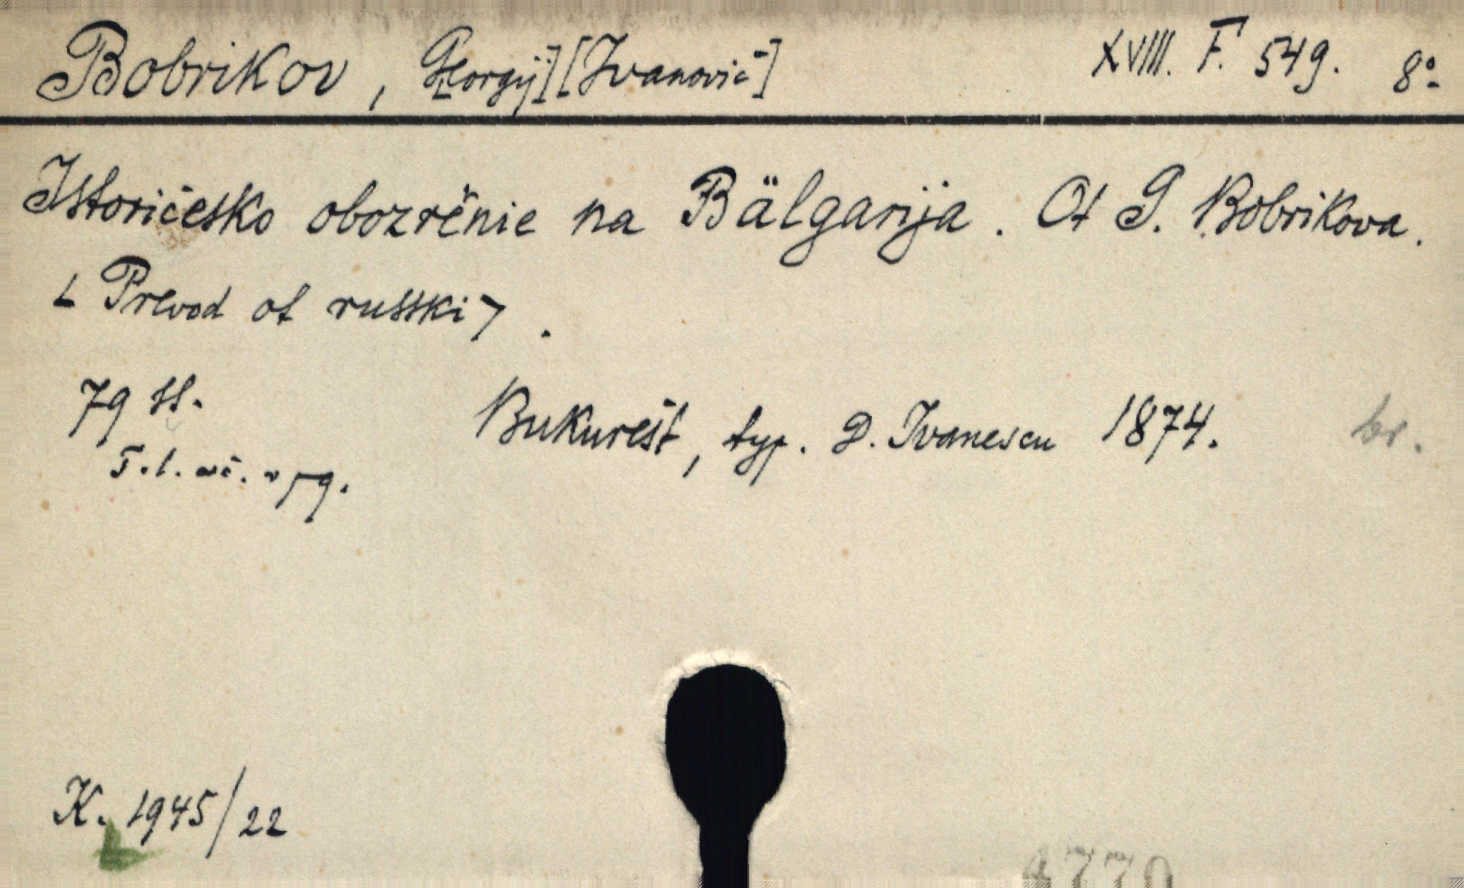 Bobrikov, G[eorgij] [Ivanovič] XVIII. F. 549. 8º
Istoričesko obozrěnie na Bălgarija. Ot G. Bobrikova.
< Prevod ot russki > .
79 ss. Bukurešt, typ. D. Ivanescu 1874. br.
T. l. wč. v 79.
K. 1945/22
4770